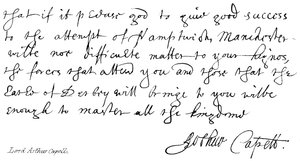 that if it please god to give good success
to the attempt of Namptwich, Manchester
wilbe noe difficulte matter to your highnes,
the forces that attend you and those that the
Earle of Derby will bringe to you wilbe
enough to master all the kingdome
Arthur Capell.
Lord Arthur Capell.